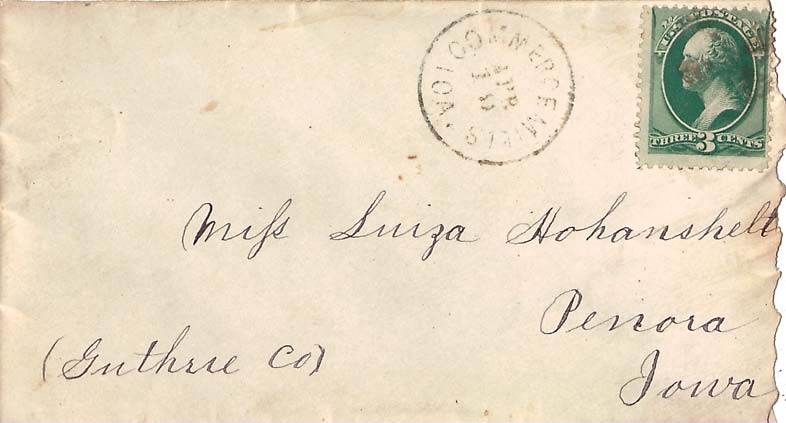 COMMERCE MILLS IOA.
APR
U.S. POSTAGE
THREE 3 CENTS
Miss Luiza Hohanshelt
Penora
(Guthrie Co)
Iowa